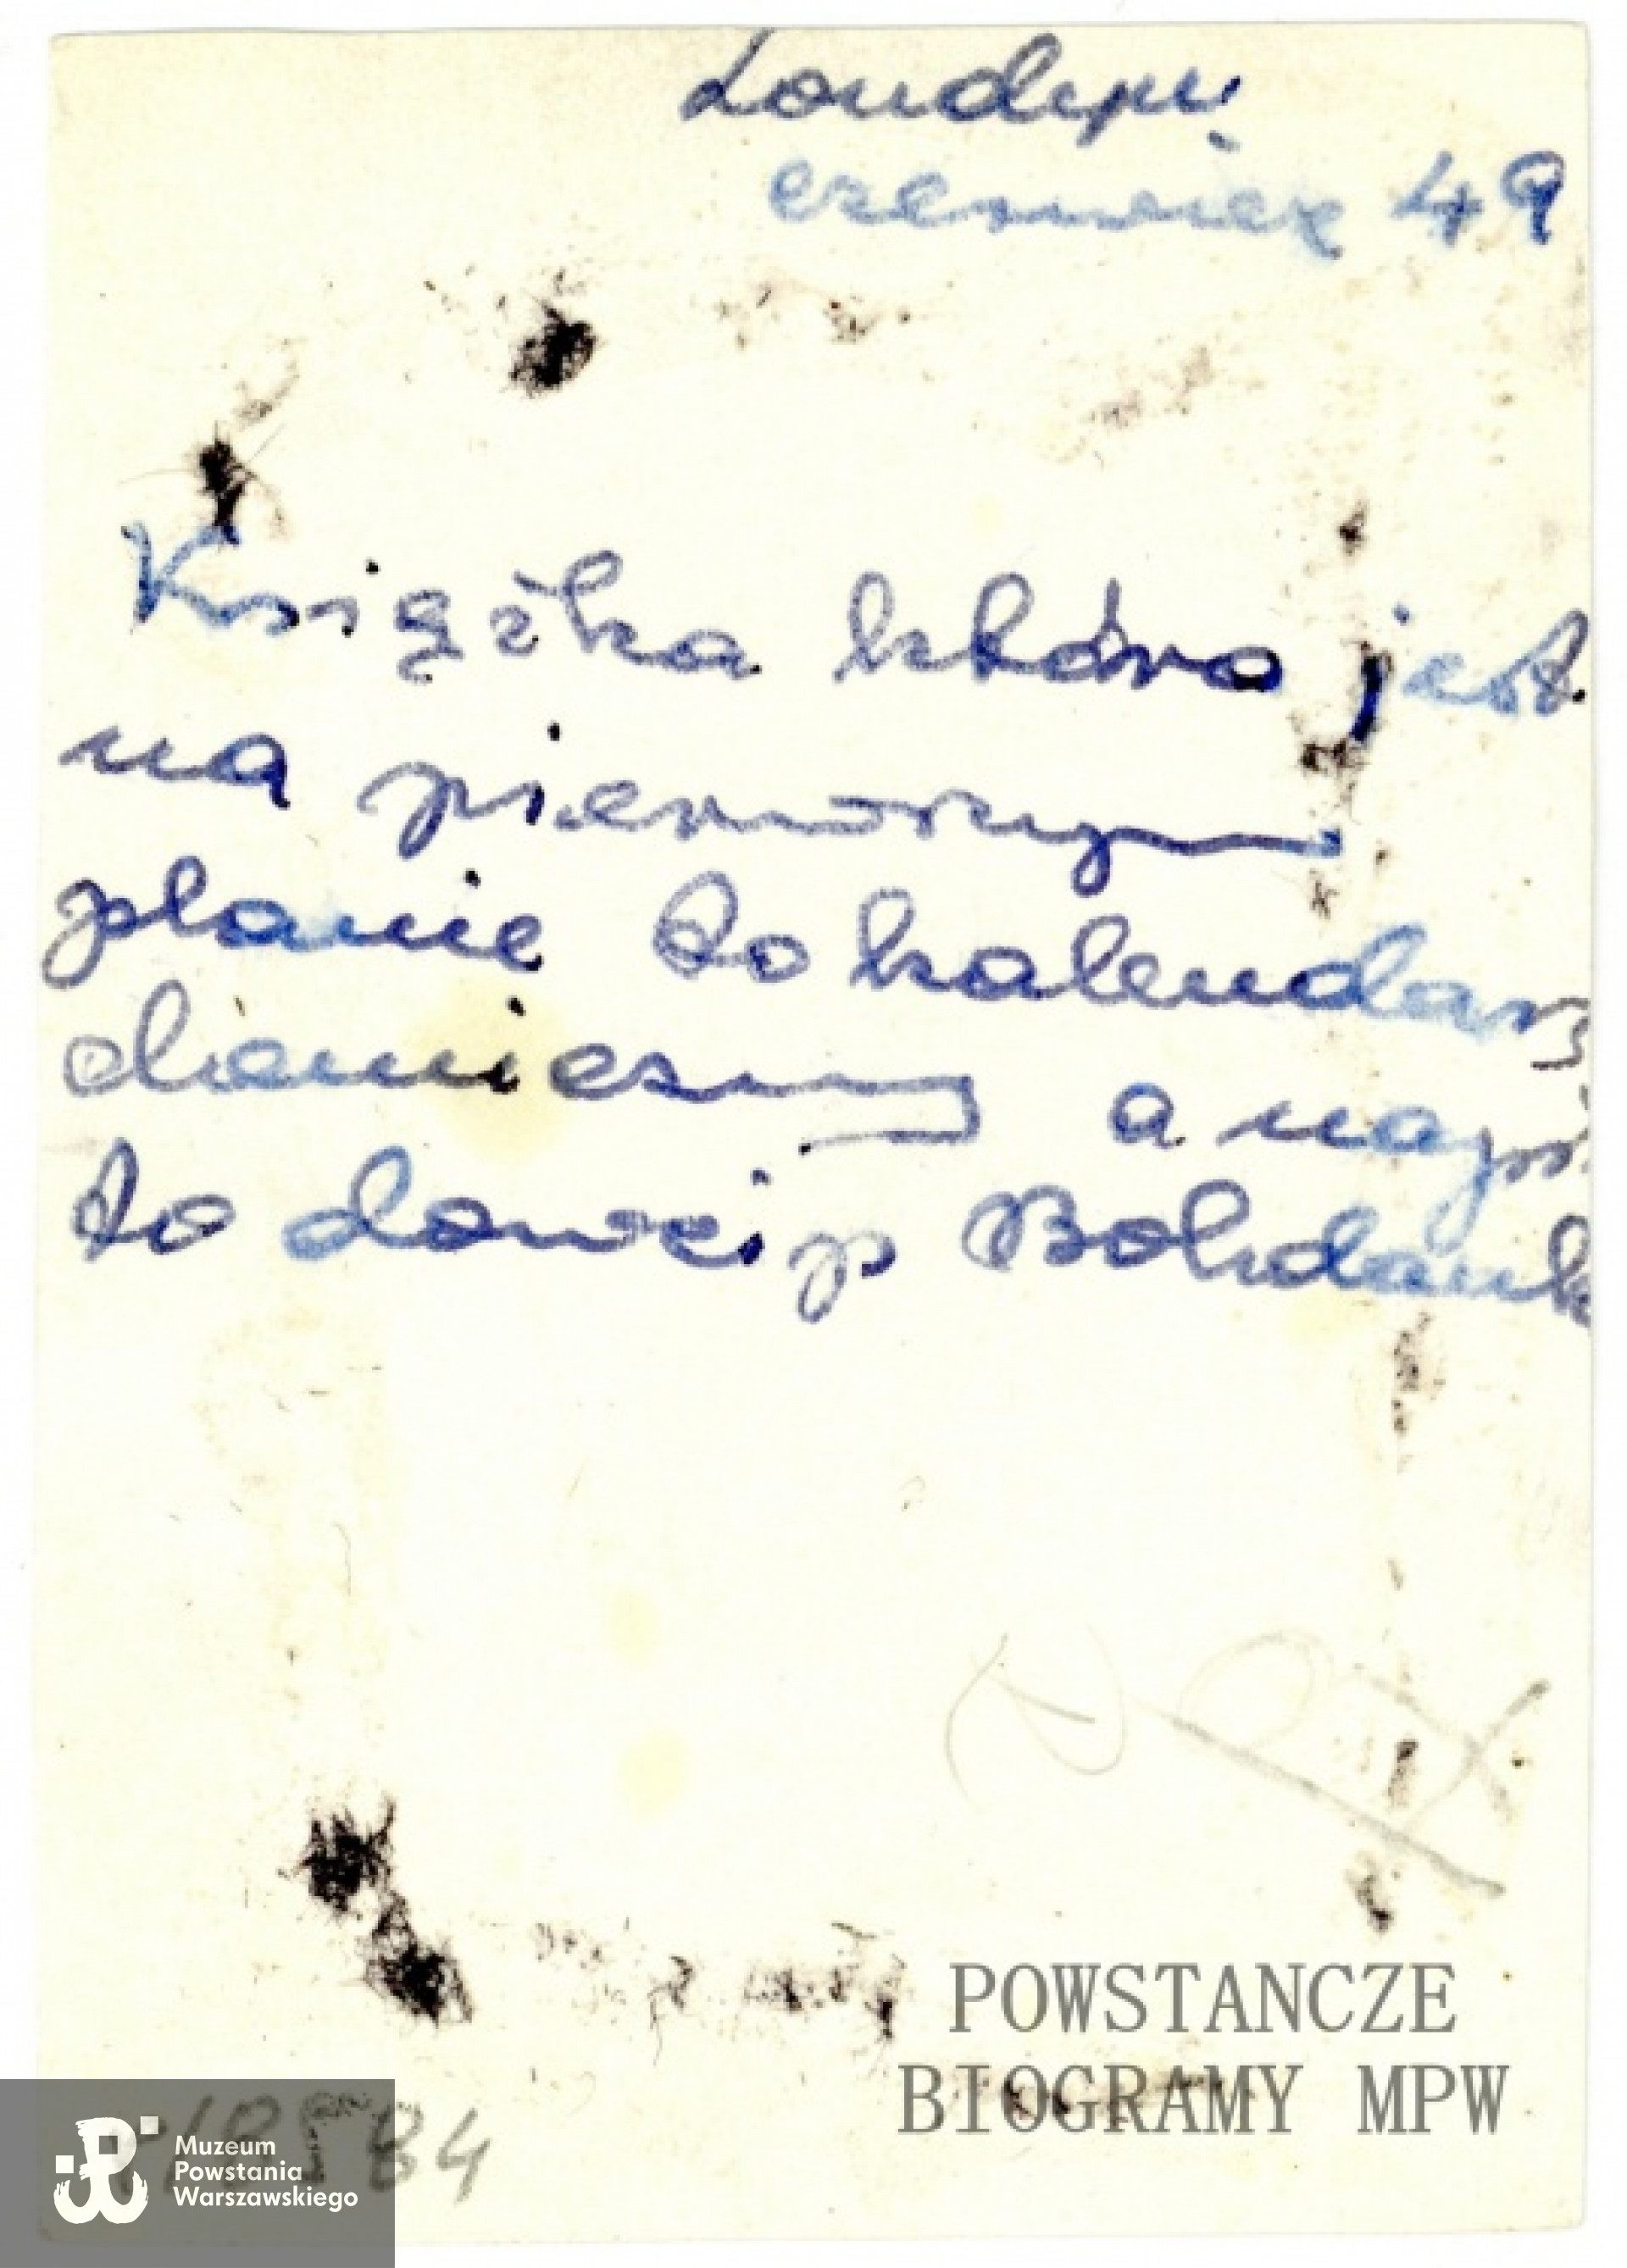 Londyn
czerwiec 49
Książka która jest
na pierwszym
planie to kalendarz
chemiczny a napis
to dowcip Bohdank
POWSTANCZE
BIOGRAMY MPW
Muzeum
Powstania
Warszawskiego